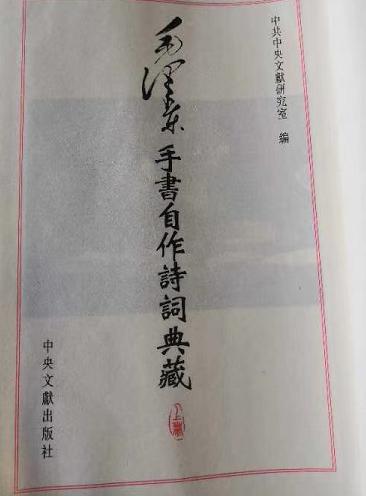 中共中央文獻研究室 編
毛澤東手書自作詩詞典藏
上卷
中央文獻出版社